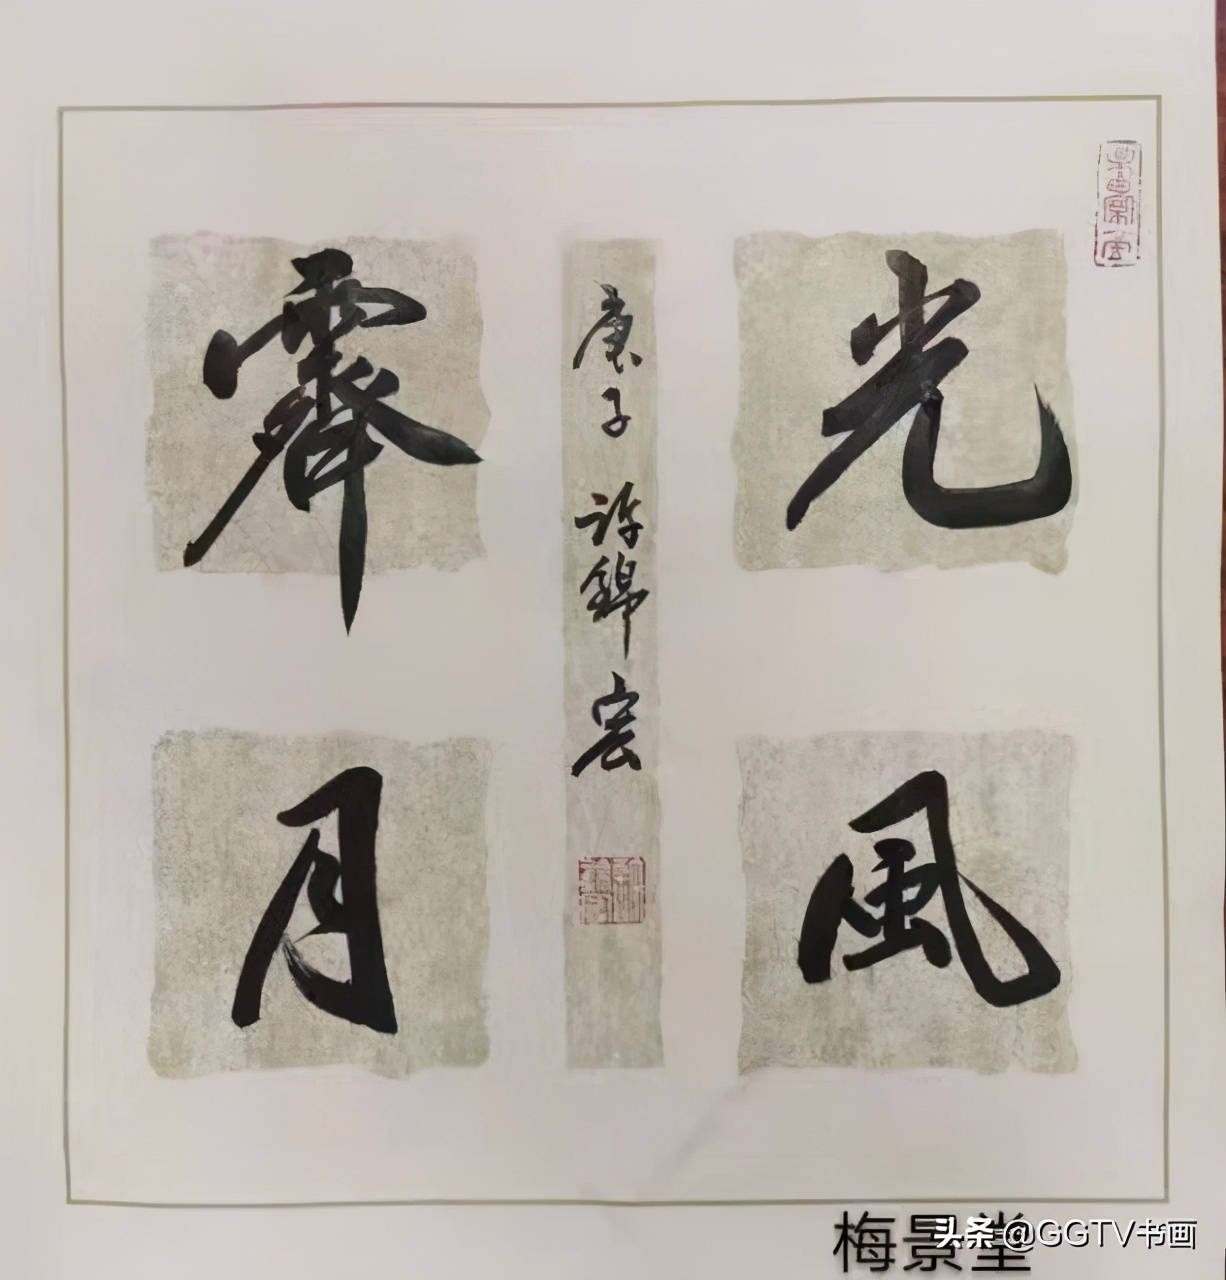 光風
霽月
庚子 許錦宏
梅景堂
头条@GGTV书画